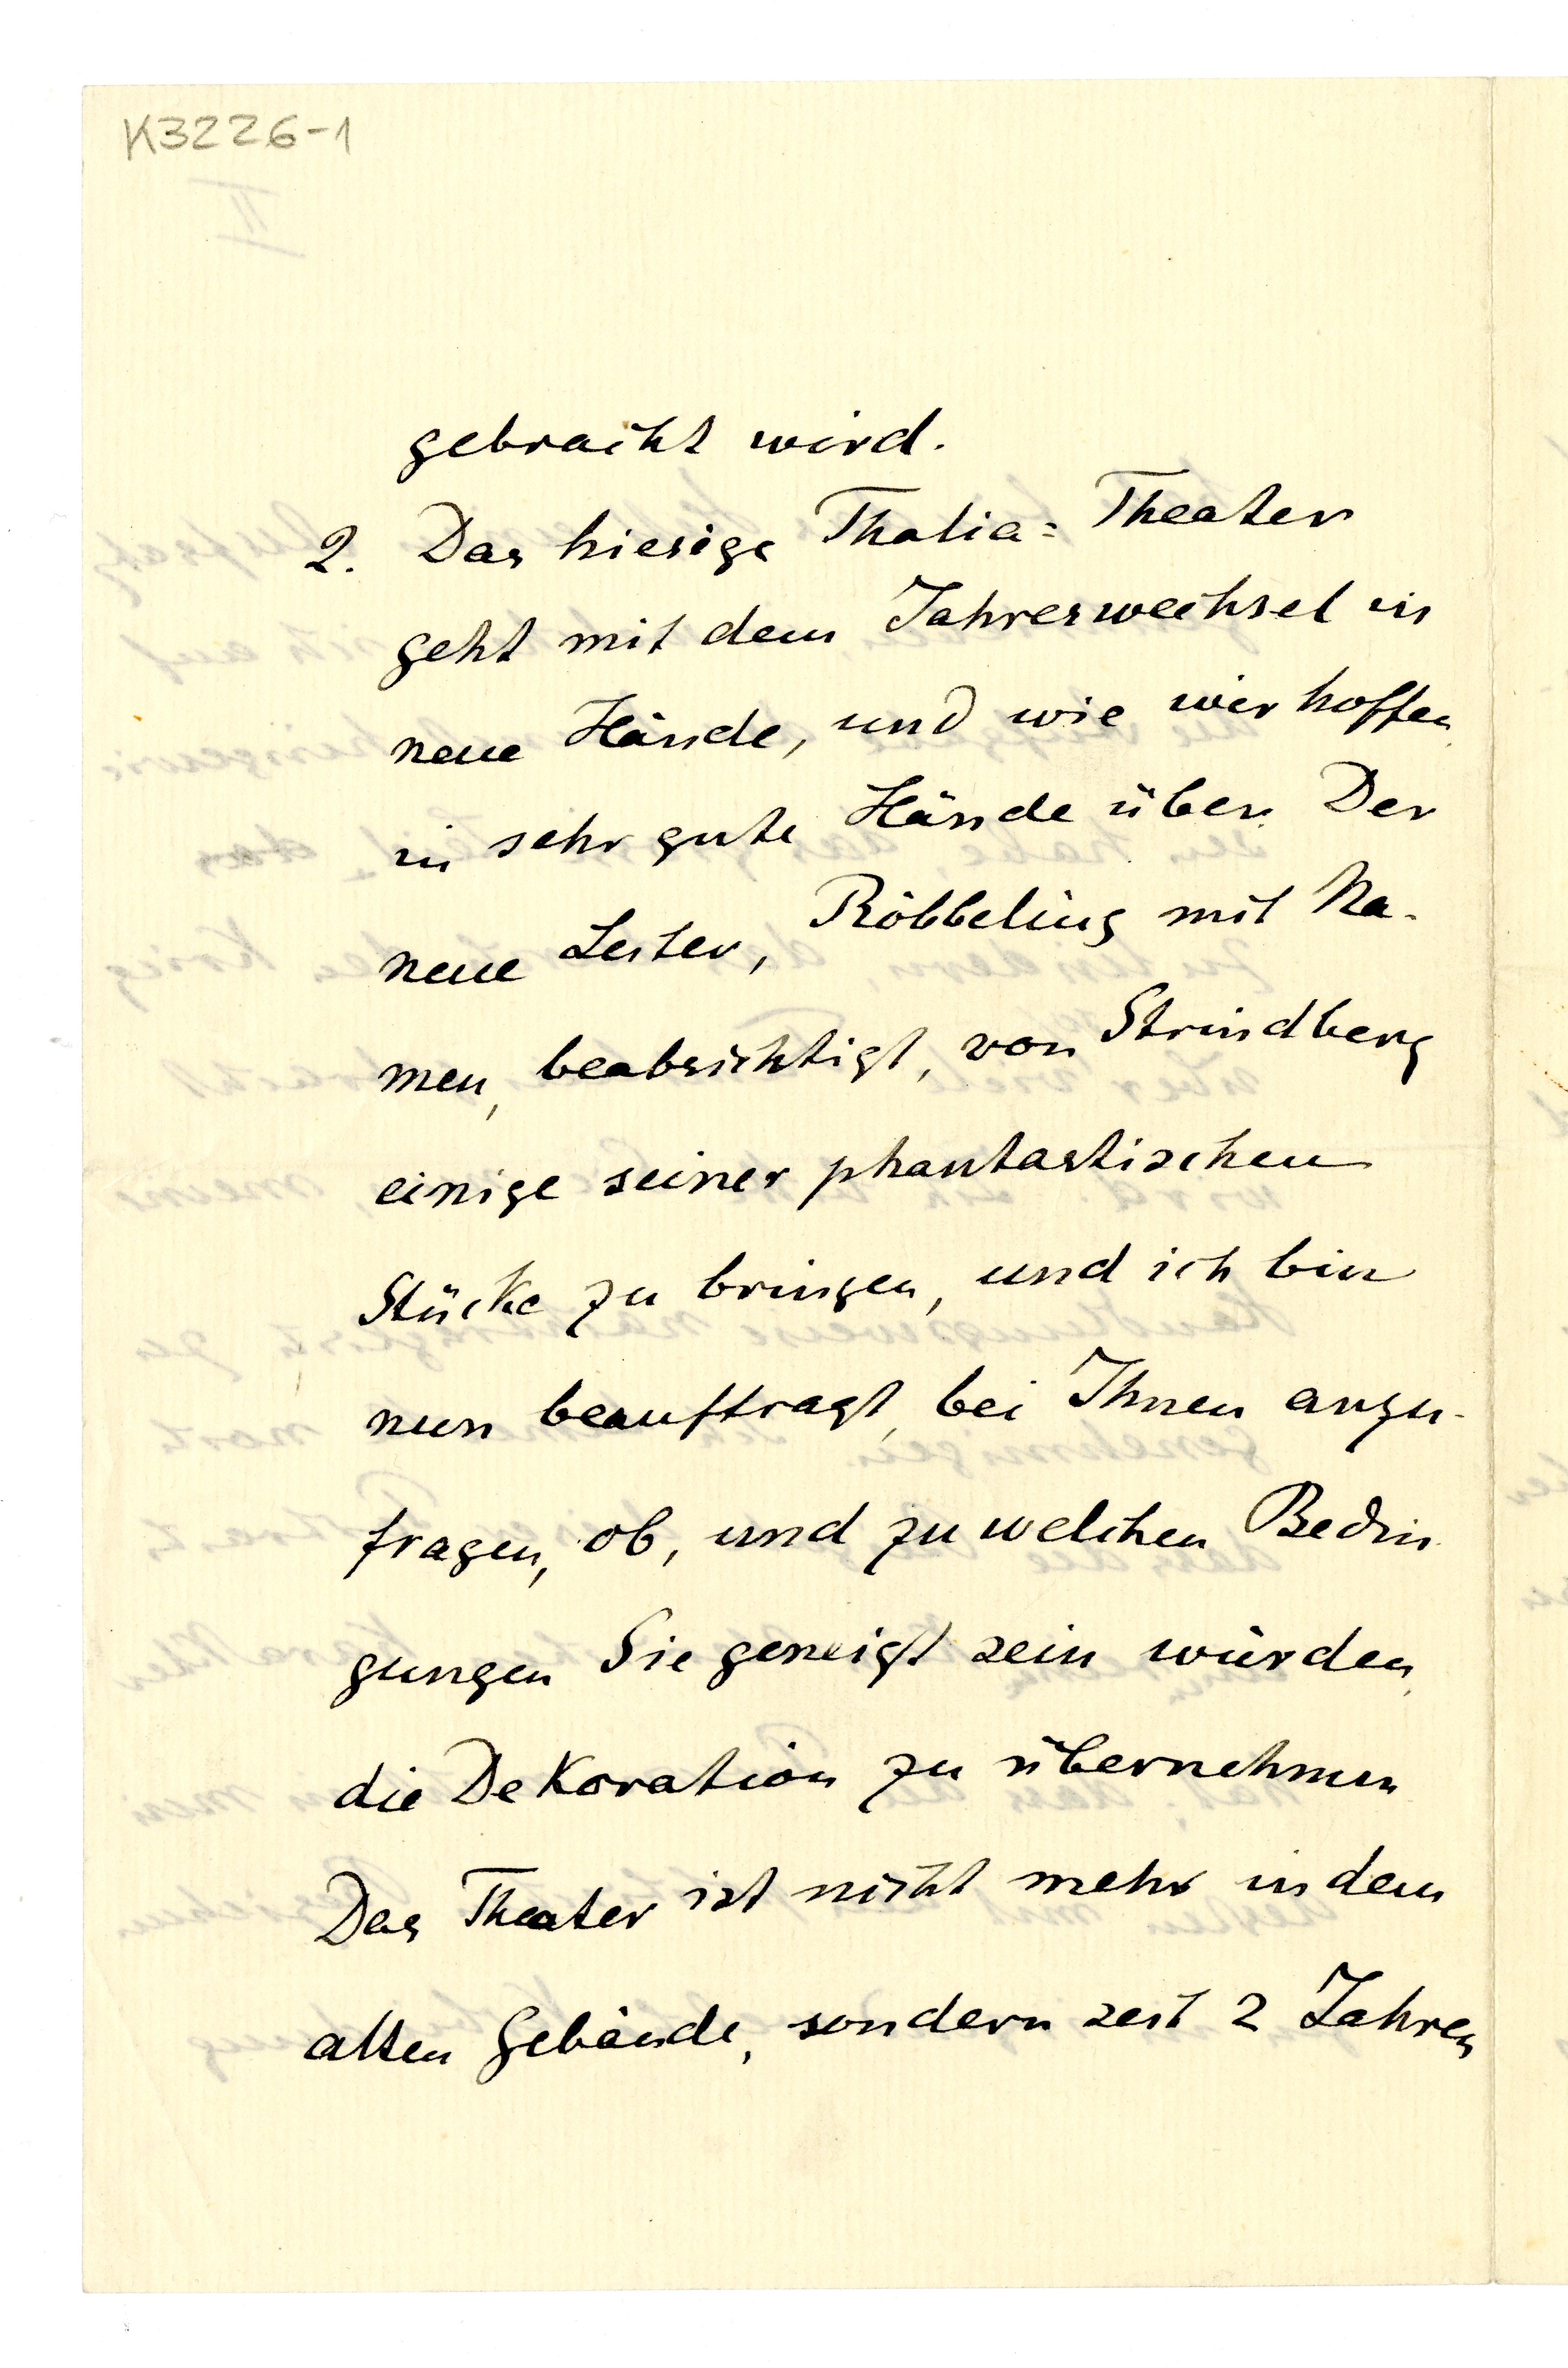 K3226-1
gebracht wird.
2. Das hiesige Thalia=Theater
geht mit dem Jahreswechsel in
neue Hände, und wie wir hoffen,
in sehr gute Hände über. Der
neue Leiter, Röbbeling mit Na-
men, beabsichtigt, von Strindberg
einige seiner phantastischen
Stücke zu bringen, und ich bin
nun beauftragt, bei Ihnen anzu-
fragen, ob, und zu welchen Bedin-
gungen Sie geneigt sein würden,
die Dekoration zu übernehmen
Das Theater ist nicht mehr in dem
alten Gebäude, sondern seit 2 Jahren